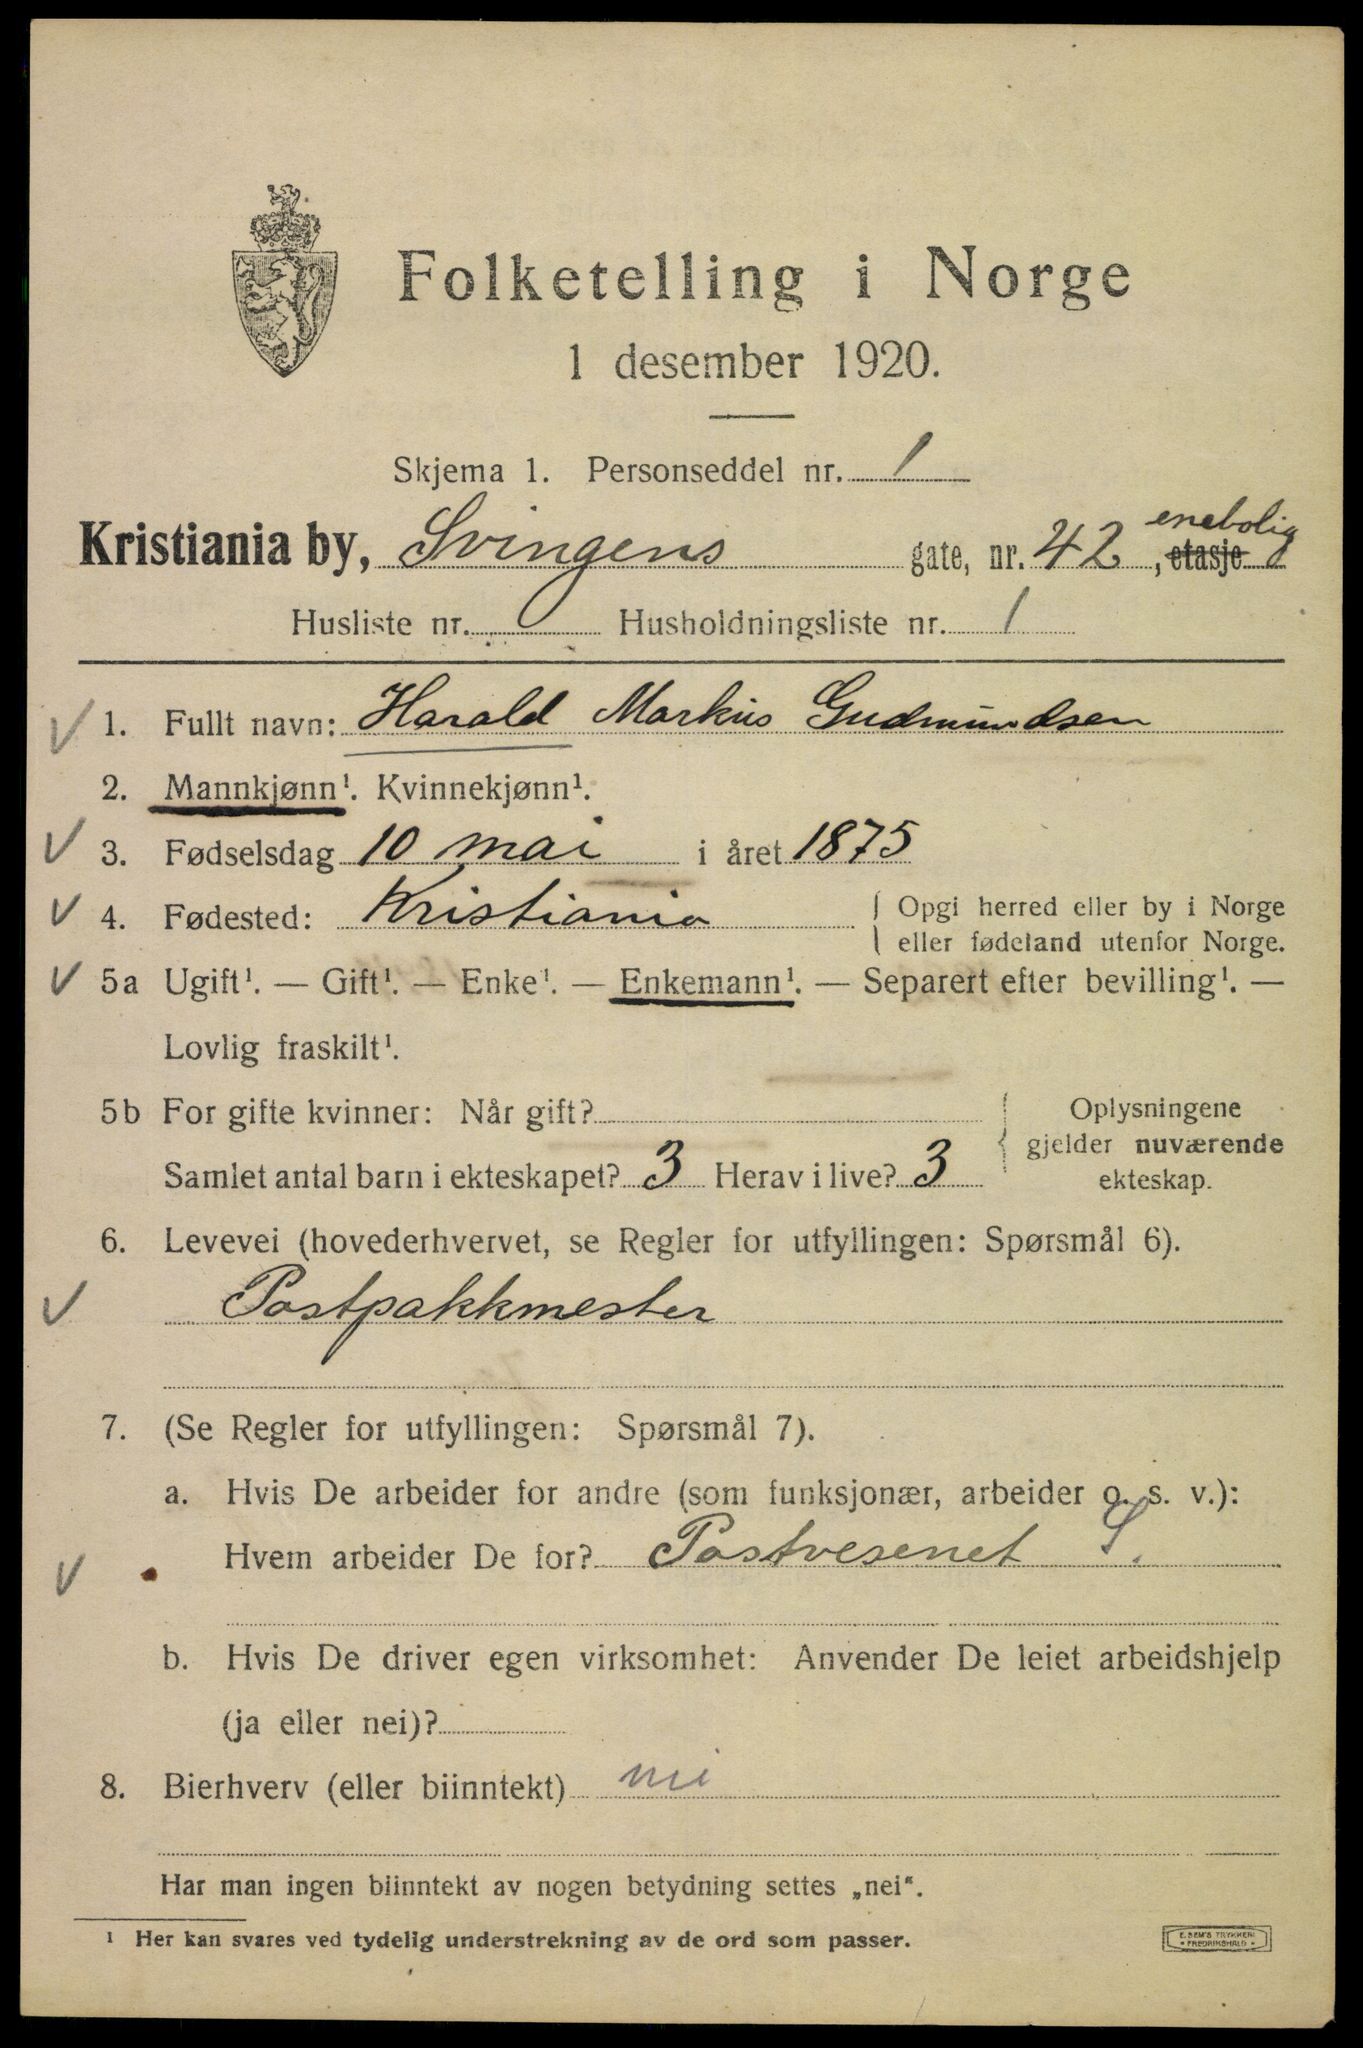 Folketelling i Norge
1 desember 1920.
Skjema 1. Personseddel nr. 1
Kristiania by, Svingens gate, nr. 42 enebolig, etasje
Husliste nr. Husholdningsliste nr. 1
1. Fullt navn: Harald Markus Gudmundsen
2. Mannkjønn¹. Kvinnekjønn¹.
3. Fødselsdag 10 mai i året 1875
4. Fødested: Kristiania
Opgi herred eller by i Norge
eller fødeland utenfor Norge.
5a Ugift¹. — Gift¹. — Enke¹. — Enkemann¹. — Separert efter bevilling¹. —
Lovlig fraskilt¹.
5b For gifte kvinner: Når gift?
Samlet antal barn i ekteskapet? 3 Herav i live? 3
Oplysningene
gjelder nuværende
ekteskap.
6. Levevei (hovederhvervet, se Regler for utfyllingen: Spørsmål 6).
Postpakkmester
7. (Se Regler for utfyllingen: Spørsmål 7).
a. Hvis De arbeider for andre (som funksjonær, arbeider o. s. v.):
Hvem arbeider De for? Postvesenet S.
b. Hvis De driver egen virksomhet: Anvender De leiet arbeidshjelp
(ja eller nei)?
8. Bierhverv (eller biinntekt) nei
Har man ingen biinntekt av nogen betydning settes „nei“.
¹ Her kan svares ved tydelig understrekning av de ord som passer.
E. SEM'S TRYKKERI
• FREDRIKSHALD •